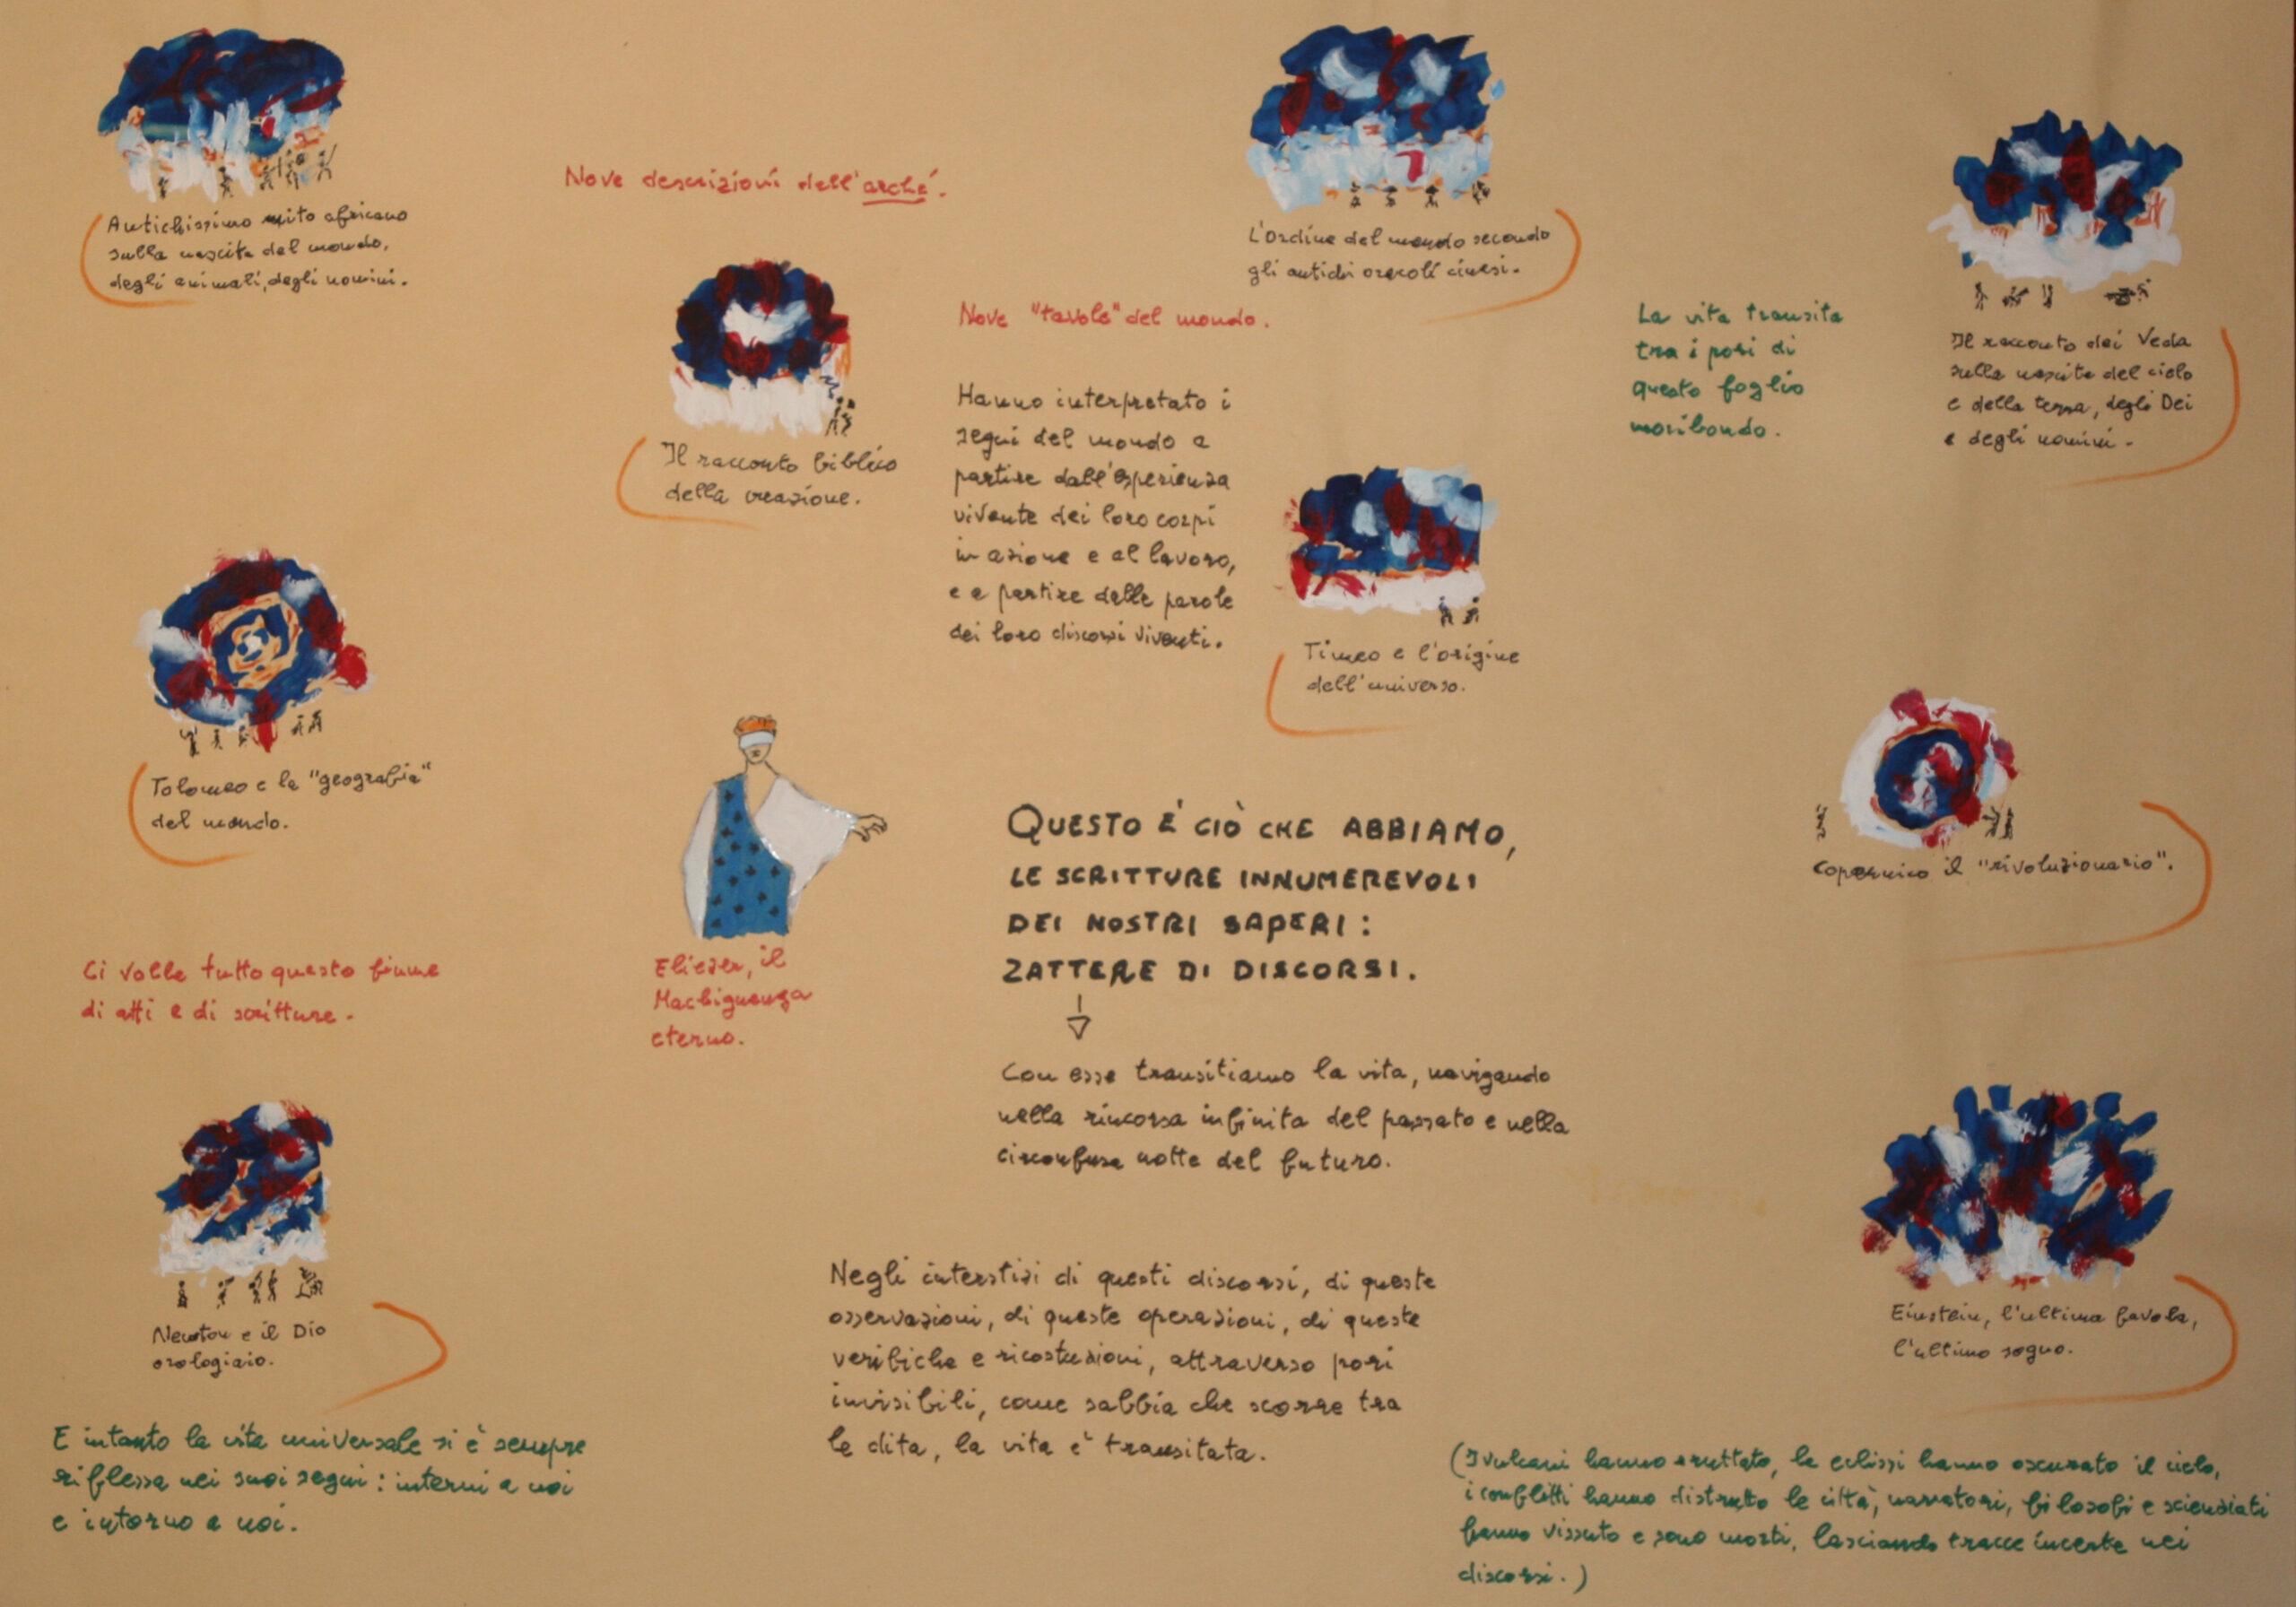 Antichissimo mito africano
sulla nascita del mondo,
degli animali, degli uomini.
Nove descrizioni dell'arché.
L'ordine del mondo secondo
gli antichi oracoli cinesi.
Il racconto biblico
della creazione.
Nove "tavole" del mondo.
Hanno interpretato i
segni del mondo a
partire dall'esperienza
vivente dei loro corpi
in azione e al lavoro,
e a partire dalle parole
dei loro discorsi viventi.
La vita transita
tra i pori di
questo foglio
moribondo.
Il racconto dei Veda
sulla nascita del cielo
e della terra, degli Dei
e degli uomini.
Timeo e l'origine
dell'universo.
Tolomeo e la "geografia"
del mondo.
Copernico il "rivoluzionario".
Eliezer, il
Machiguenga
eterno.
QUESTO È CIÒ CHE ABBIAMO,
LE SCRITTURE INNUMEREVOLI
DEI NOSTRI SAPERI:
ZATTERE DI DISCORSI.
Con esse transitiamo la vita, navigando
nella rincorsa infinita del passato e nella
circonfusa notte del futuro.
Ci volle tutto questo fiume
di atti e di scritture.
Newton e il Dio
orologiaio.
Einstein, l'ultima favola,
l'ultimo sogno.
Negli interstizi di questi discorsi, di queste
osservazioni, di queste operazioni, di queste
verifiche e ricostruzioni, attraverso pori
invisibili, come sabbia che scorre tra
le dita, la vita è transitata.
E intanto la vita universale si è sempre
riflessa nei suoi segni: interni a noi
e intorno a noi.
(I vulcani hanno eruttato, le eclissi hanno oscurato il cielo,
i conflitti hanno distrutto le città, narratori, filosofi e scienziati
hanno vissuto e sono morti, lasciando tracce incerte nei
discorsi.)